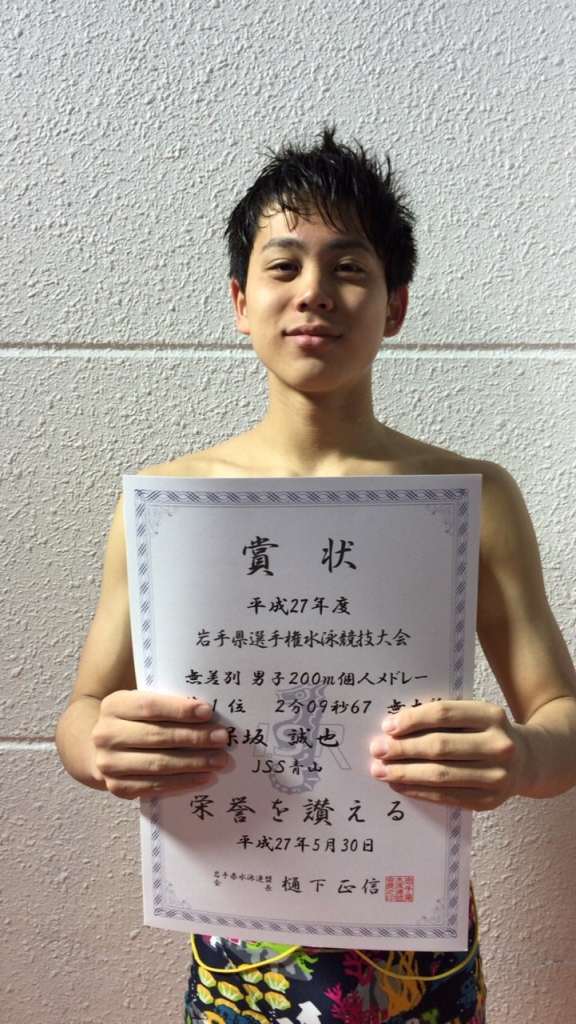 賞状
平成27年度
岩手県選手権水泳競技大会
無差別 男子200m個人メドレー
1位 2分09秒67
坂 誠也
JSS青山
栄誉を讃える
平成27年5月30日
岩手県水泳連盟
会長 樋下正信